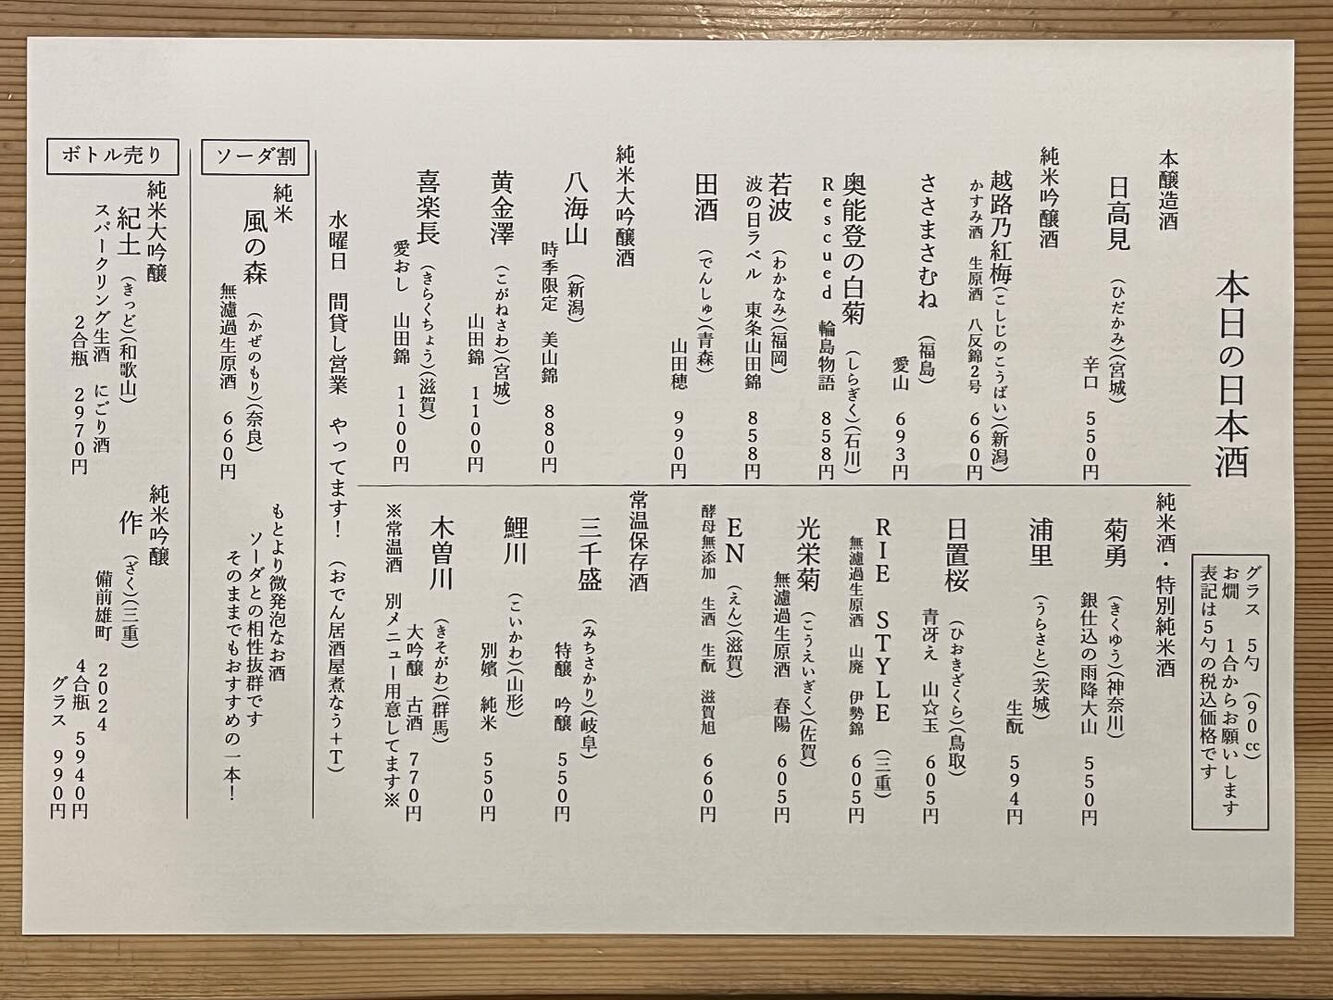 本日の日本酒
グラス　５勺　（９０㏄）
お燗　１合からお願いします
表記は５勺の税込価格です
本醸造酒
日高見　（ひだかみ）（宮城）
辛口　５５０円
純米吟醸酒
越路乃紅梅（こしじのこうばい）（新潟）
かすみ酒　生原酒　八反錦２号　６６０円
ささまさむね　（福島）
愛山　６９３円
奥能登の白菊　（しらぎく）（石川）
Ｒｅｓｃｕｅｄ　輪島物語　８５８円
若波　（わかなみ）（福岡）
波の日ラベル　東条山田錦　８５８円
田酒　（でんしゅ）（青森）
山田穂　９９０円
純米大吟醸酒
八海山　（新潟）
時季限定　美山錦　８８０円
黄金澤　（こがねさわ）（宮城）
山田錦　１１００円
喜楽長　（きらくちょう）（滋賀）
愛おし　山田錦　１１００円
純米酒・特別純米酒
菊勇　（きくゆう）（神奈川）
銀仕込の雨降大山　５５０円
浦里　（うらさと）（茨城）
生酛　５９４円
日置桜　（ひおきざくら）（鳥取）
青冴え　山☆玉　６０５円
ＲＩＥ　ＳＴＹＬＥ　（三重）
無濾過生原酒　山廃　伊勢錦　６０５円
光栄菊　（こうえいぎく）（佐賀）
無濾過生原酒　春陽　６０５円
ＥＮ　（えん）（滋賀）
酵母無添加　生酒　生酛　滋賀旭　６６０円
常温保存酒
三千盛　（みちさかり）（岐阜）
特醸　吟醸　５５０円
鯉川　（こいかわ）（山形）
別嬪　純米　５５０円
木曽川　（きそがわ）（群馬）
大吟醸　古酒　７７０円
※常温酒　別メニュー用意してます※
水曜日　間貸し営業　やってます！　（おでん居酒屋煮なう＋Ｔ）
ソーダ割
純米
風の森　（かぜのもり）（奈良）
無濾過生原酒　６６０円
もとより微発泡なお酒
ソーダとの相性抜群です
そのままでもおすすめの一本！
ボトル売り
純米大吟醸
紀土　（きっど）（和歌山）
スパークリング生酒　にごり酒
２合瓶　２９７０円
純米吟醸
作　（ざく）（三重）
備前雄町　２０２４
４合瓶　５９４０円
グラス　９９０円